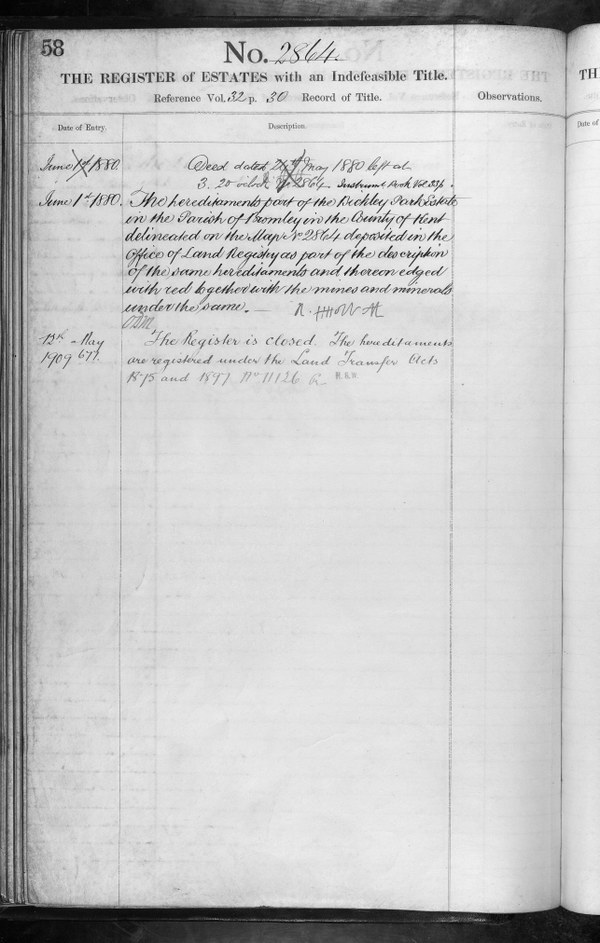 58
No. 2864.
THE REGISTER of ESTATES with an Indefeasible Title.
Reference Vol. 32 p. 30 Record of Title. Observations.
Date of Entry. Description.
June 1st 1880. Deed dated May 1880 left at
3. 20 o'clock No 2864 Instrumt Book Vol
June 1st 1880. The hereditaments part of the Bickley Park Estate
in the Parish of Bromley in the County of Kent
delineated on the Map No 2864 deposited in the
Office of Land Registry as part of the description
of the same hereditaments and thereon edged
with red together with the mines and minerals
under the same. —
13th May The Register is closed. The hereditaments
1909 are registered under the Land Transfer Acts
1875 and 1897 No 11126
TH
Date of